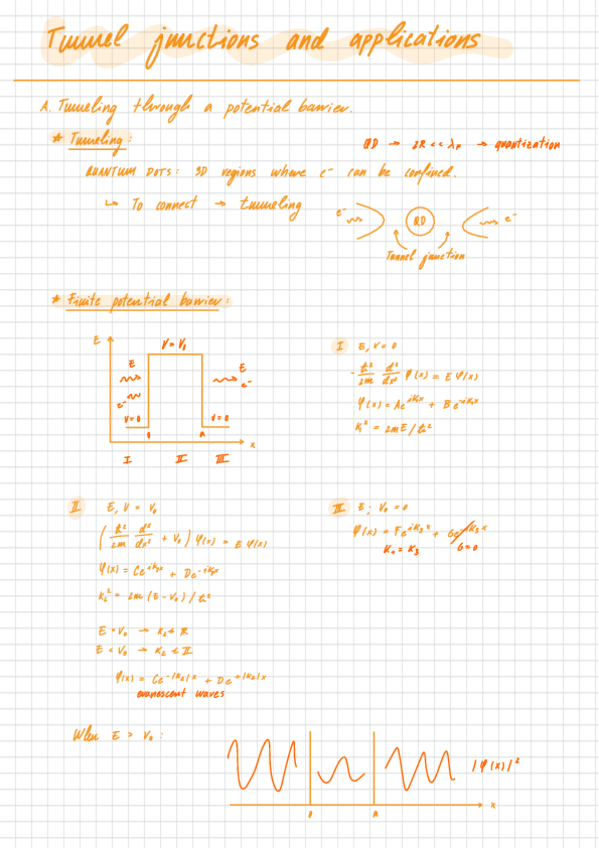 Tunnel junctions and applications
A. Tunneling through a potential barrier.
* Tunneling:
QD → 2R << λF → quantization
QUANTUM DOTS: 3D regions where e⁻ can be confined.
↳ To connect → tunneling
e⁻ QD e⁻
Tunnel junction
* Finite potential barrier:
E
V = V₀
E E
e⁻ e⁻
V=0 V=0
0 a x
I II III
I E, V = 0
- ħ²/2m d²/dx² φ(x) = E φ(x)
φ(x) = A e^{ik₁x} + B e^{-ik₁x}
k₁² = 2mE/ħ²
II E, V = V₀
(ħ²/2m d²/dx² + V₀) φ(x) = E φ(x)
φ(x) = C e^{ik₂x} + D e^{-ik₂x}
k₂² = 2m (E - V₀) / ħ²
E > V₀ → k₂ ∈ ℝ
E < V₀ → k₂ ∈ 𝕀
φ(x) = C e^{-|k₂|x} + D e^{+|k₂|x}
evanescent waves
III E; V₀ = 0
φ(x) = F e^{ik₃x} + G e^{-ik₃x}
k₁ = k₃ G=0
When E > V₀:
|φ(x)|²
0 a x